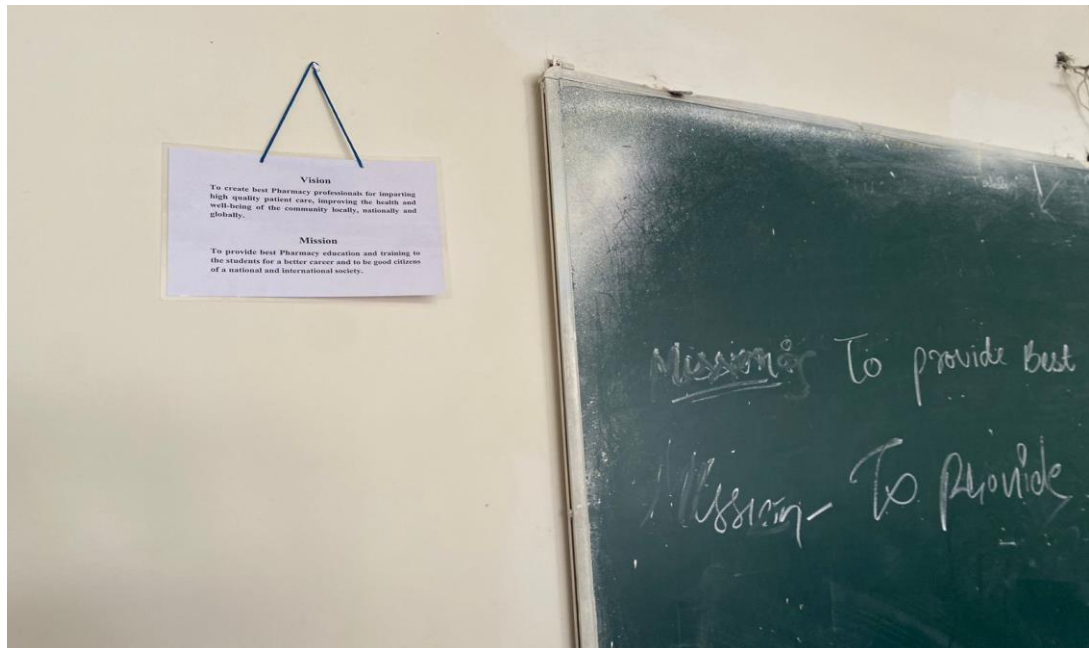 Vision
To create best Pharmacy professionals for imparting
high quality patient care, improving the health and
well-being of the community locally, nationally and
globally.
Mission
To provide best Pharmacy education and training to
the students for a better career and to be good citizens
of a national and international society.
Mission To provide Best
Mission- To Provide